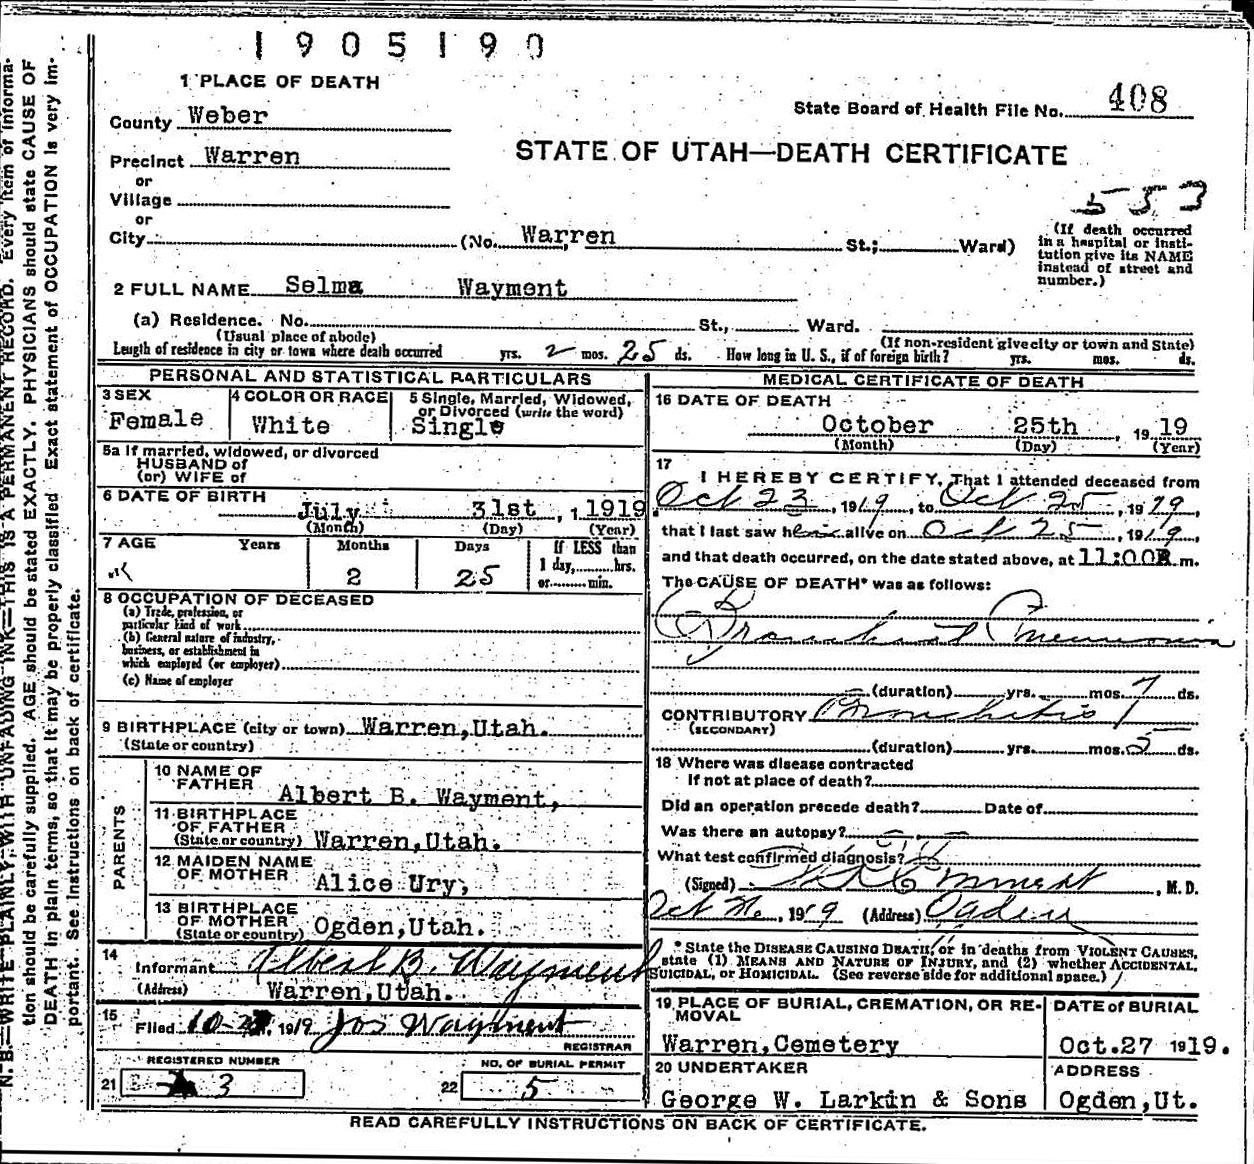 1905190
1 PLACE OF DEATH
State Board of Health File No. 408
County Weber
STATE OF UTAH—DEATH CERTIFICATE
Precinct Warren
or
Village
553
or
City (No. Warren St.; Ward)
(If death occurred
in a hospital or insti-
tution give its NAME
instead of street and
number.)
2 FULL NAME Selma Wayment
(a) Residence. No. St., Ward.
(Usual place of abode) (If non-resident give city or town and State)
Length of residence in city or town where death occurred yrs. 2 mos. 25 ds. How long in U. S., if of foreign birth? yrs. mos. ds.
PERSONAL AND STATISTICAL PARTICULARS
3 SEX
Female
4 COLOR OR RACE
White
5 Single, Married, Widowed,
or Divorced (write the word)
Single
5a If married, widowed, or divorced
HUSBAND of
(or) WIFE of
6 DATE OF BIRTH
July 31st, 1919
(Month) (Day) (Year)
7 AGE Years Months Days If LESS than
1 day, hrs.
2 25 or min.
8 OCCUPATION OF DECEASED
(a) Trade, profession, or
particular kind of work
(b) General nature of industry,
business, or establishment in
which employed (or employer)
(c) Name of employer
9 BIRTHPLACE (city or town) Warren,Utah.
(State or country)
PARENTS
10 NAME OF
FATHER Albert B. Wayment,
11 BIRTHPLACE
OF FATHER
(State or country) Warren,Utah.
12 MAIDEN NAME
OF MOTHER Alice Ury,
13 BIRTHPLACE
OF MOTHER
(State or country) Ogden,Utah.
14
Informant Albert B. Wayment
(Address) Warren,Utah.
15
Filed 10-27, 1919 Jos Wayment
REGISTRAR
REGISTERED NUMBER NO. OF BURIAL PERMIT
21 3 22 5
MEDICAL CERTIFICATE OF DEATH
16 DATE OF DEATH
October 25th, 1919
(Month) (Day) (Year)
17
I HEREBY CERTIFY, That I attended deceased from
Oct 23, 1919, to Oct 25, 1919,
that I last saw h alive on Oct 25, 1919,
and that death occurred, on the date stated above, at 11:00 m.
The CAUSE OF DEATH* was as follows:
Bronchial Pneumonia
(duration) yrs. mos. 7 ds.
CONTRIBUTORY Bronchitis
(SECONDARY)
(duration) yrs. mos. 5 ds.
18 Where was disease contracted
If not at place of death?
Did an operation precede death? Date of
Was there an autopsy?
What test confirmed diagnosis?
(Signed) Emmett, M. D.
Oct, 1919 (Address) Ogden
* State the DISEASE CAUSING DEATH, or in deaths from VIOLENT CAUSES,
state (1) MEANS AND NATURE OF INJURY, and (2) whether ACCIDENTAL,
SUICIDAL, or HOMICIDAL. (See reverse side for additional space.)
19 PLACE OF BURIAL, CREMATION, OR RE-
MOVAL
Warren,Cemetery
DATE of BURIAL
Oct.27 1919.
20 UNDERTAKER
George W. Larkin & Sons
ADDRESS
Ogden,Ut.
READ CAREFULLY INSTRUCTIONS ON BACK OF CERTIFICATE.
N. B.—WRITE PLAINLY, WITH UNFADING INK—THIS IS A PERMANENT RECORD. Every item of informa-
tion should be carefully supplied. AGE should be stated EXACTLY. PHYSICIANS should state CAUSE OF
DEATH in plain terms, so that it may be properly classified. Exact statement of OCCUPATION is very im-
portant. See instructions on back of certificate.